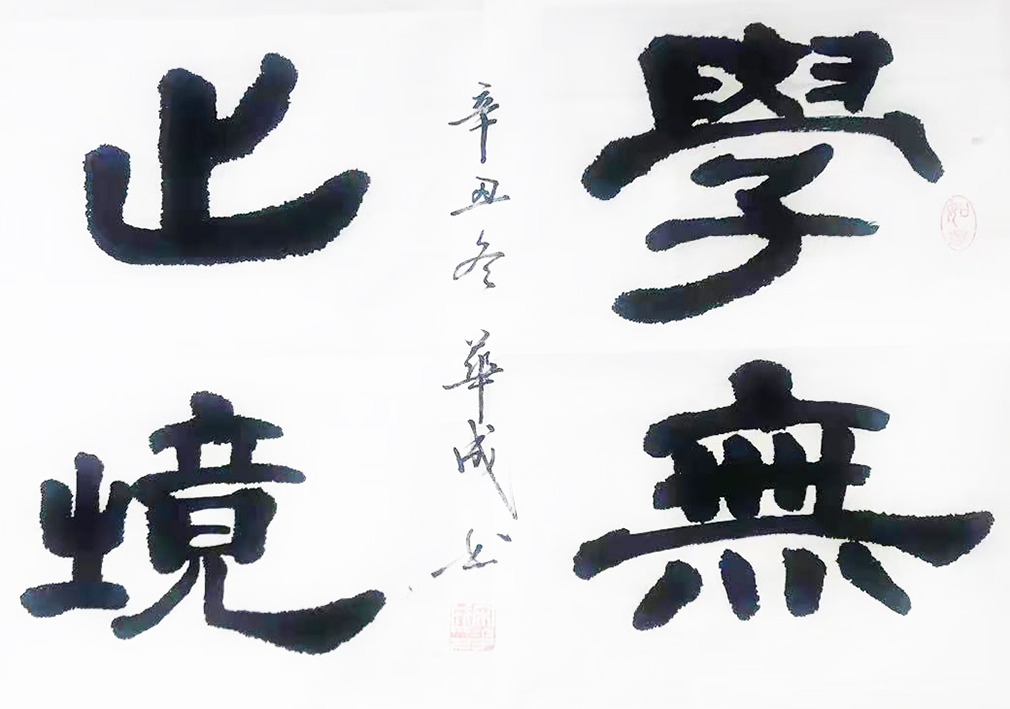 學無
止境
辛丑冬華成书